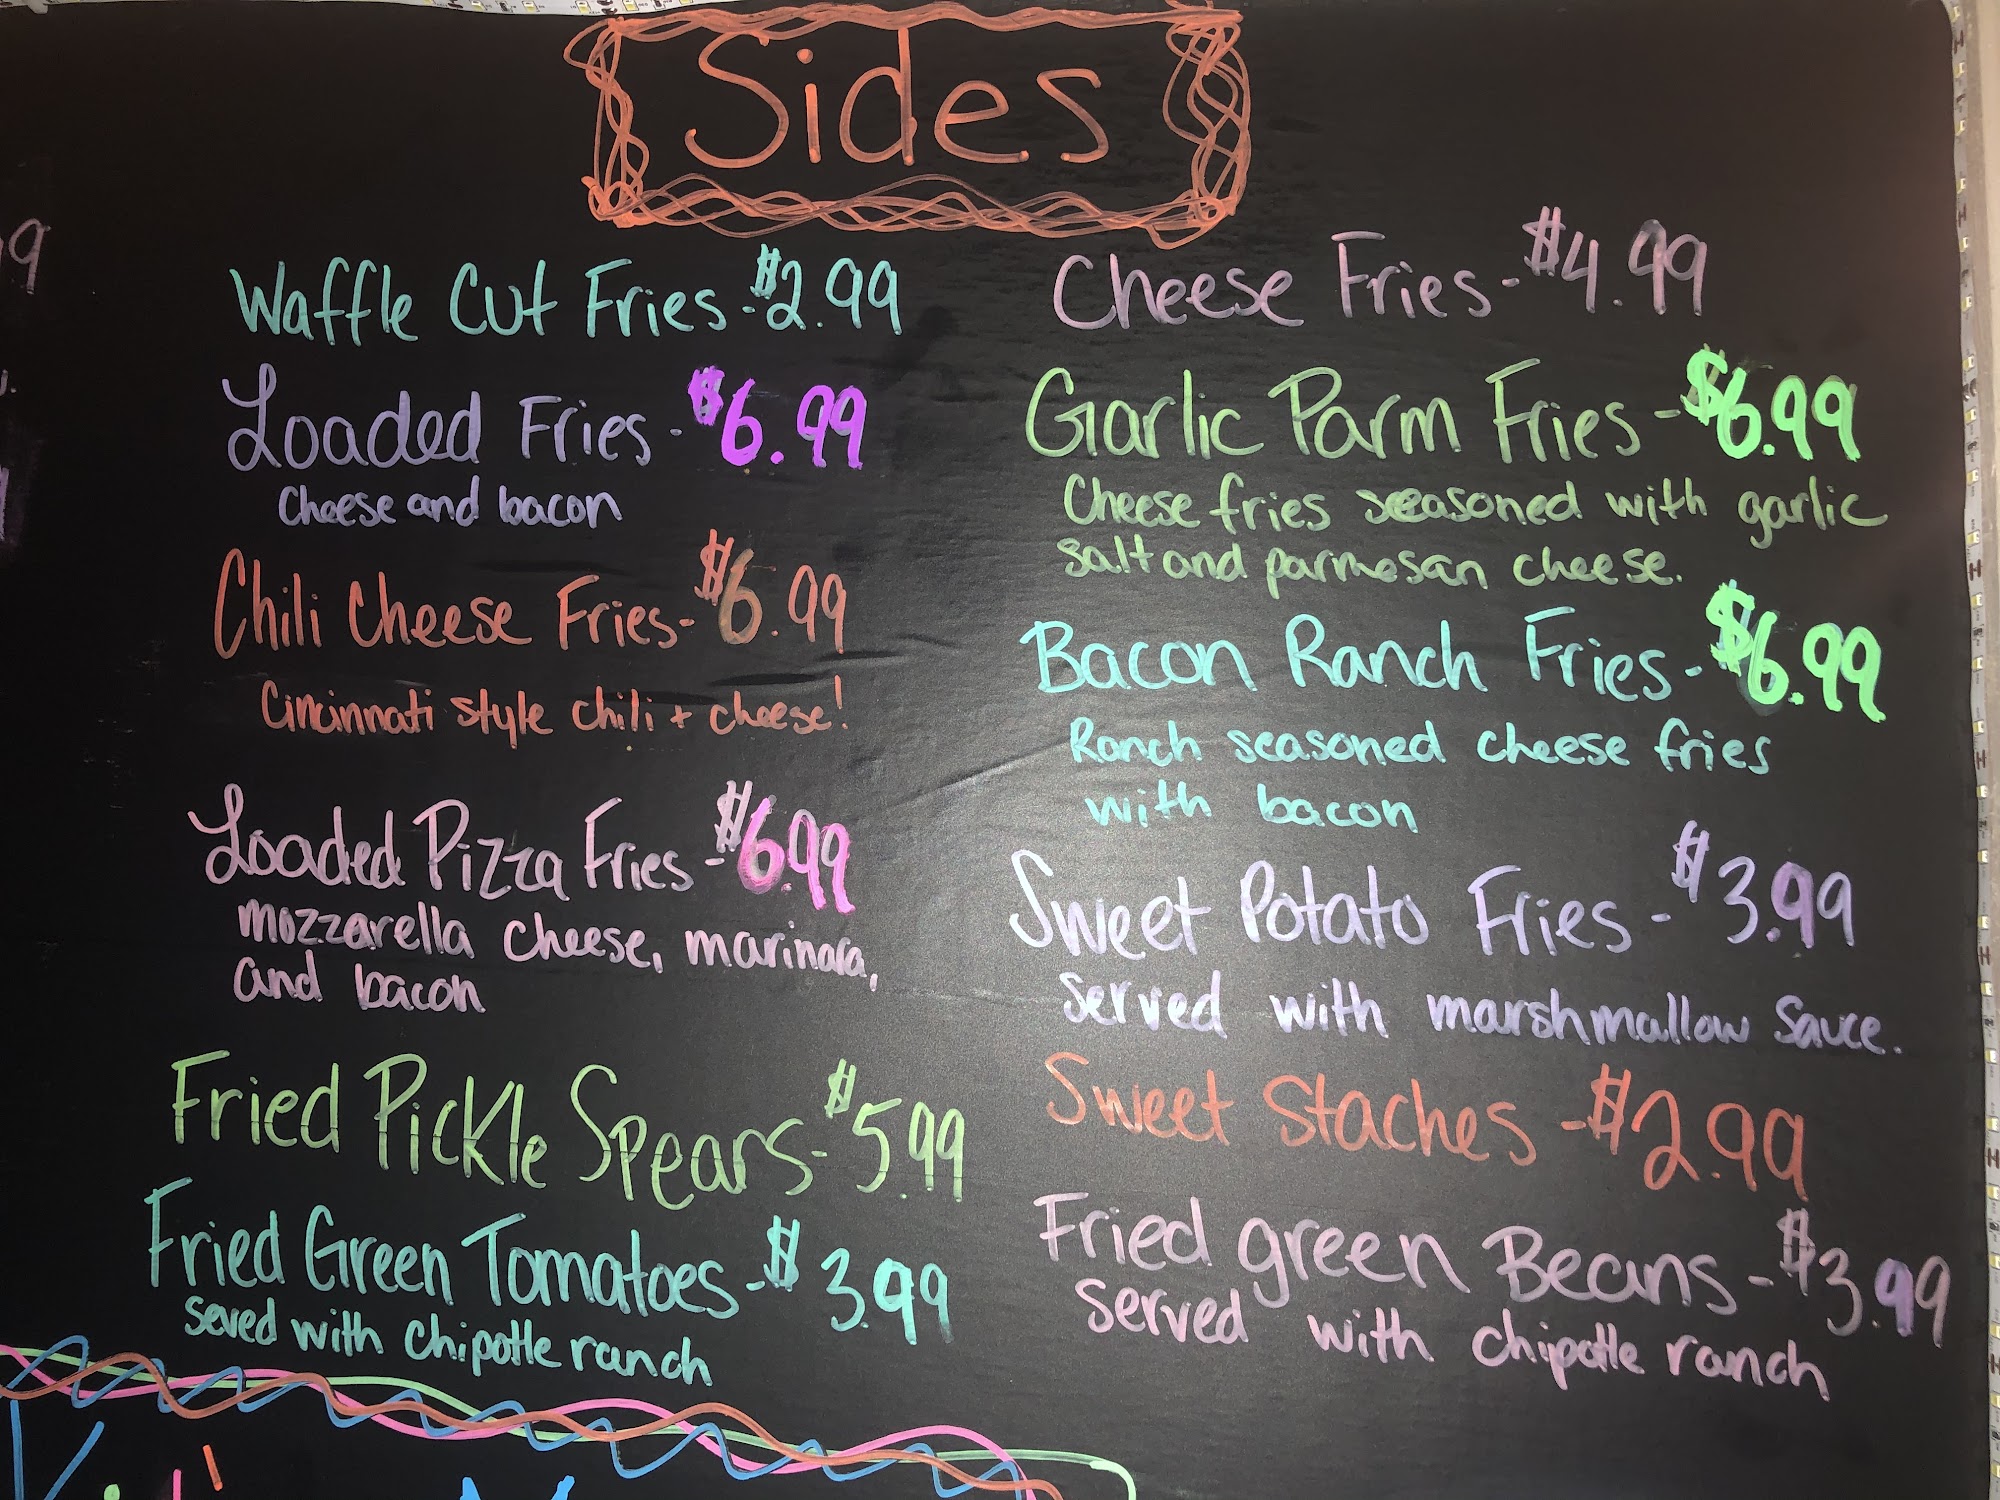 Sides
Waffle Cut Fries - $2.99
Loaded Fries - $6.99
Cheese and bacon
Chili Cheese Fries - $6.99
Cincinnati style chili + cheese!
Loaded Pizza Fries - $6.99
mozzarella cheese, marinara,
and bacon
Fried Pickle Spears - $5.99
Fried Green Tomatoes - $3.99
seved with chipotle ranch
Cheese Fries - $4.99
Garlic Parm Fries - $6.99
Cheese fries seasoned with garlic
salt and parmesan cheese.
Bacon Ranch Fries - $6.99
Ranch seasoned cheese fries
with bacon
Sweet Potato Fries - $3.99
Served with marshmallow sauce.
Sweet Staches - $2.99
Fried green Beans - $3.99
served with chipotle ranch